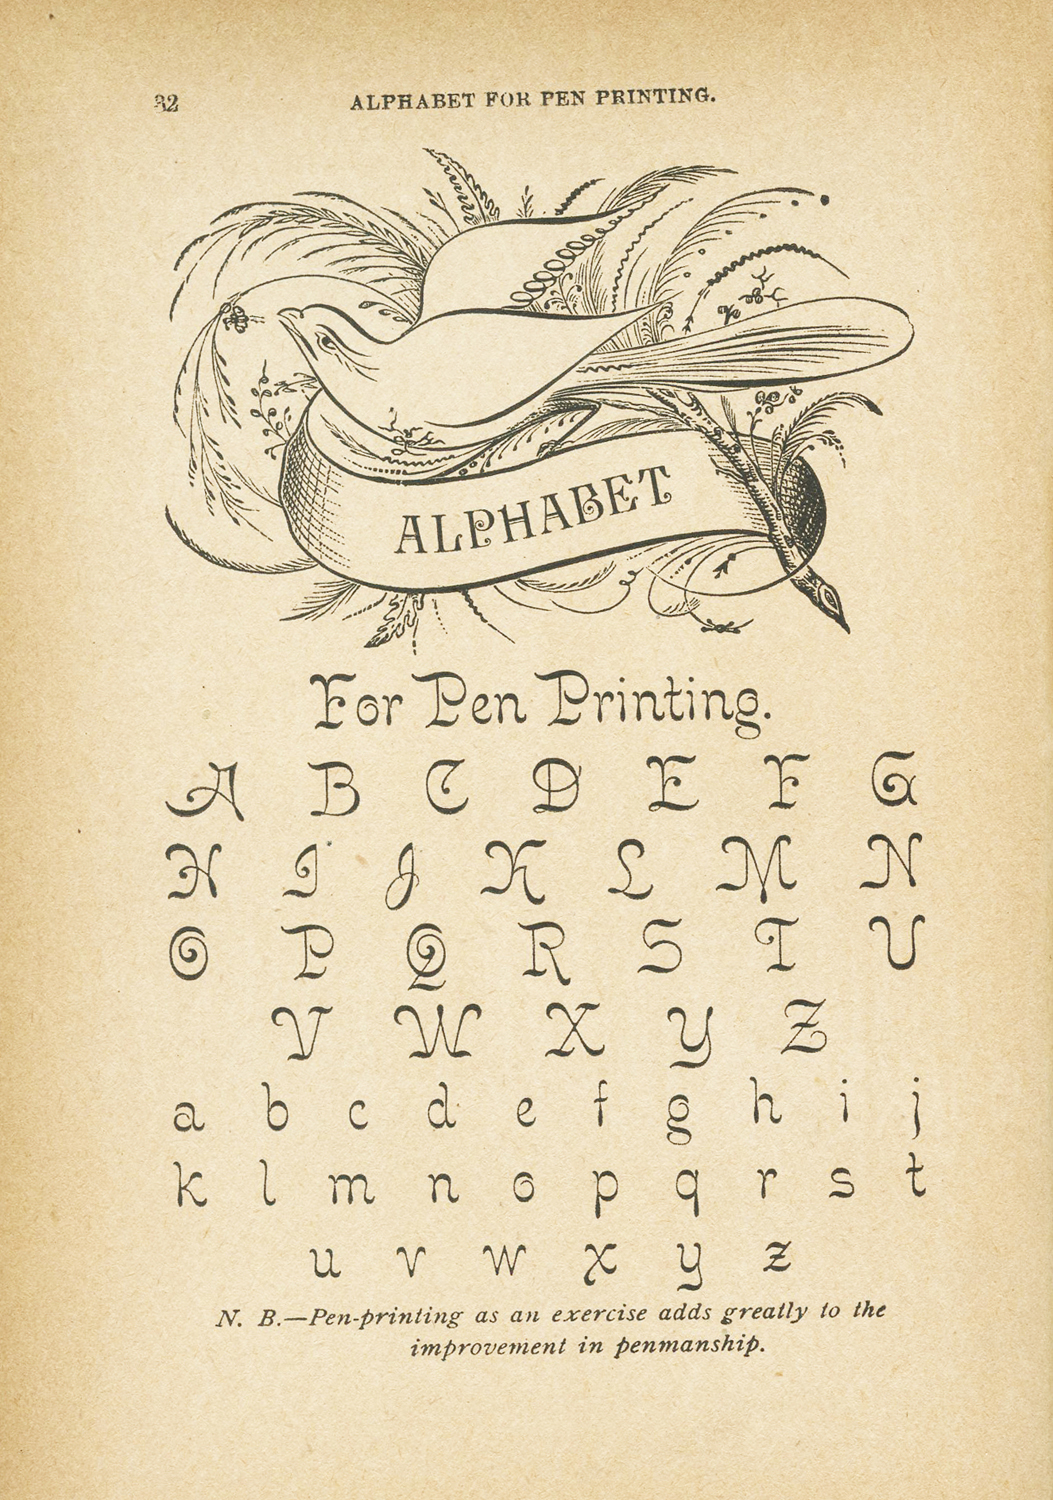 32 ALPHABET FOR PEN PRINTING.
ALPHABET
For Pen Printing.
A B C D E F G
H I J K L M N
O P Q R S T U
V W X Y Z
a b c d e f g h i j
k l m n o p q r s t
u v w x y z
N. B.—Pen-printing as an exercise adds greatly to the
improvement in penmanship.